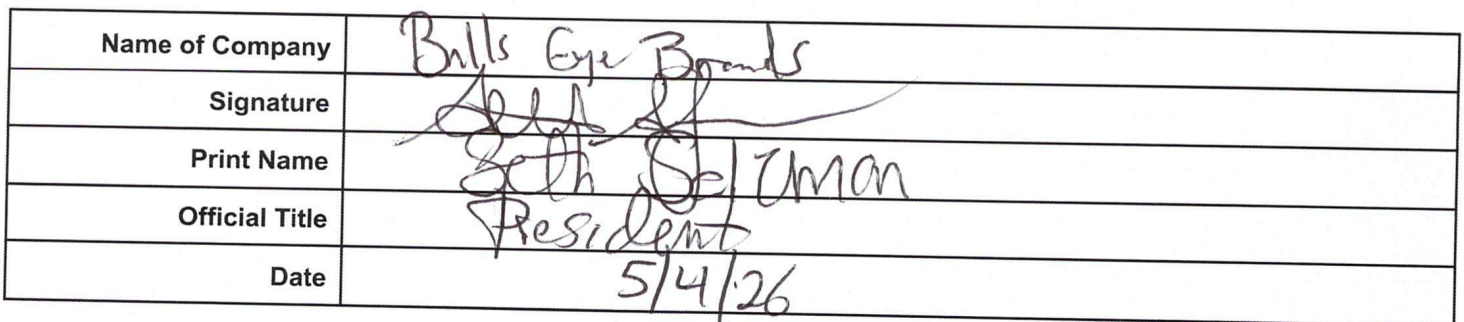 Name of Company Bulls Eye Brands
Signature
Print Name Seth Selzman
Official Title President
Date 5/4/26